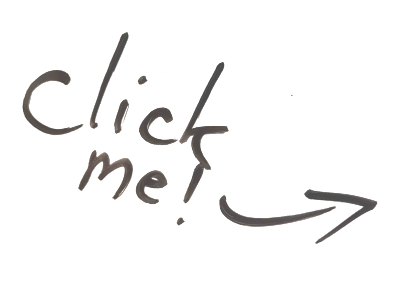 click
me!